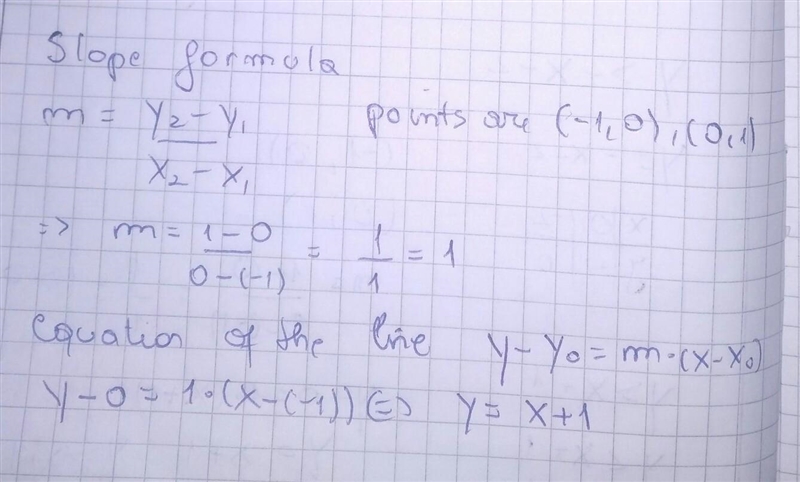 Slope formula
m = Y2 - Y1 / X2 - X1 points are (-1,0),(0,1)
=> m = 1-0 / 0-(-1) = 1/1 = 1
Equation of the line Y-Y0 = m·(X-X0)
Y-0 = 1·(X-(-1)) <=> Y = X+1